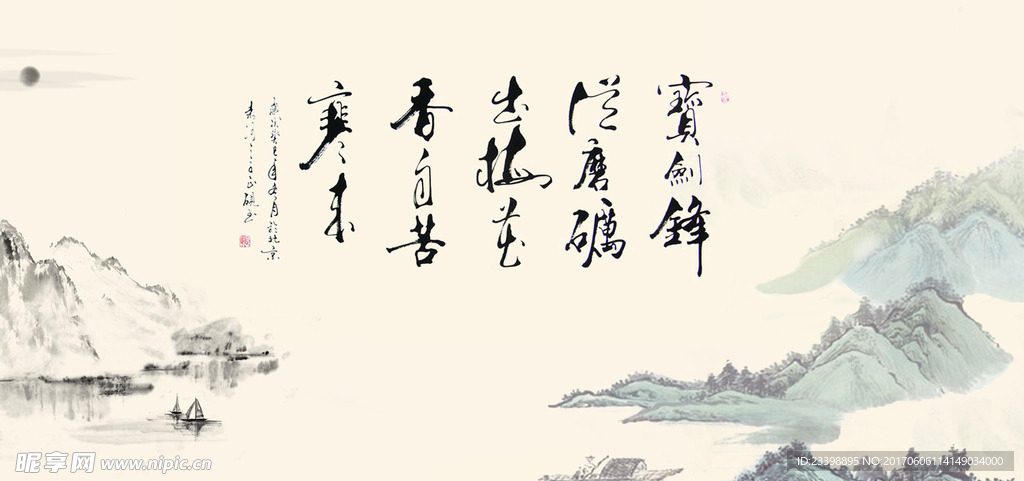 寶劍鋒
從磨礪
出梅花
香自苦
寒來
歲次癸巳年冬月於北京
昵享网 www.nipic.cn
ID:23398895 NO:20170606114149034000